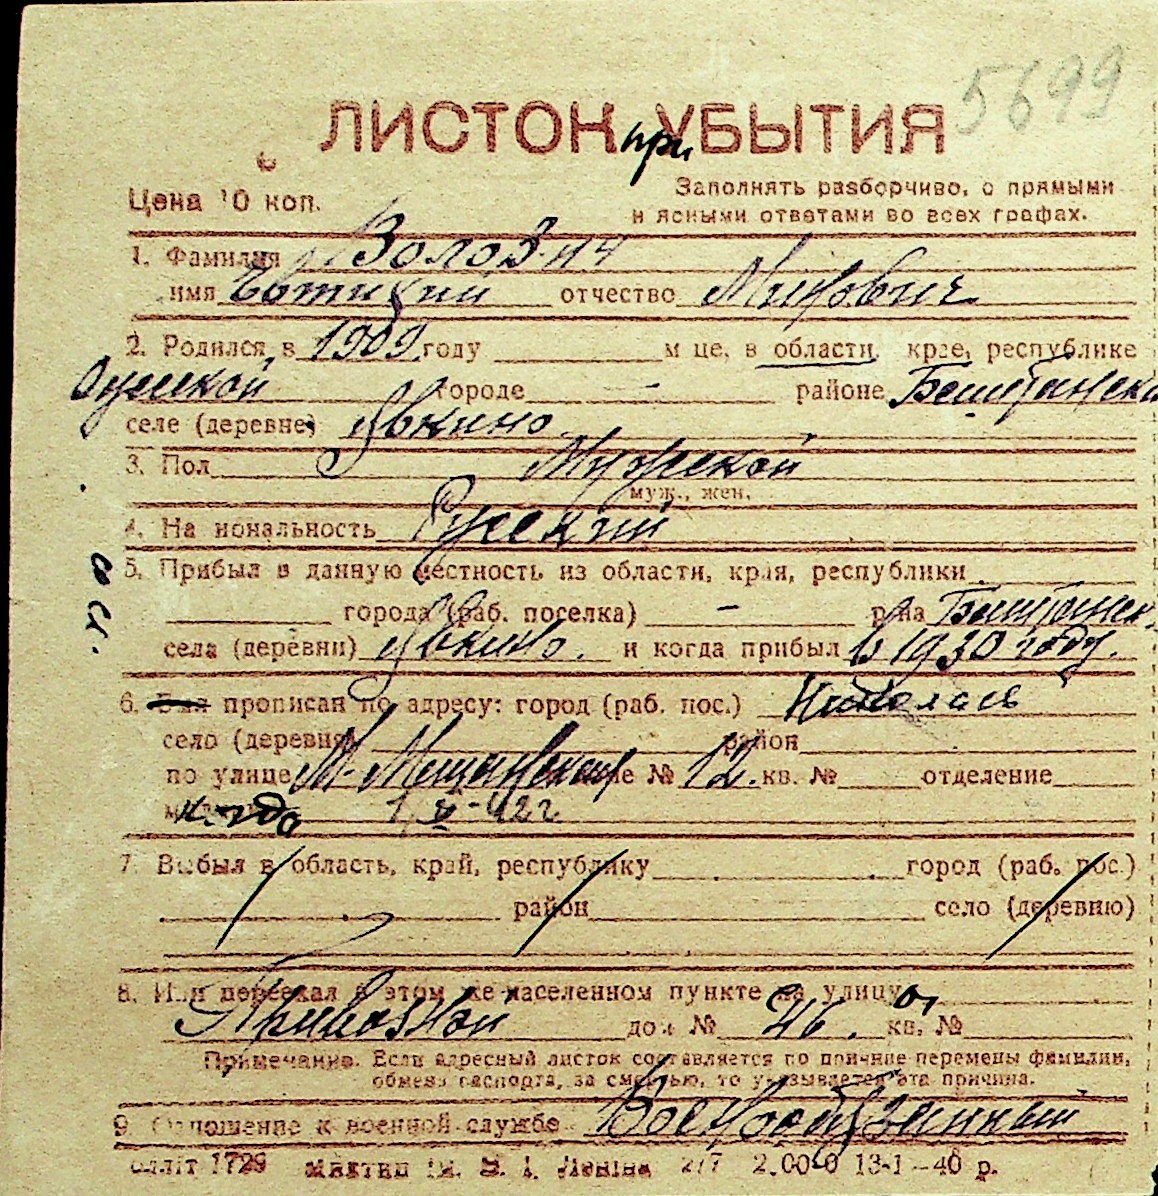 5699
ЛИСТОК при УБЫТИЯ
Цена 10 коп. Заполнять разборчиво, с прямыми
и ясными ответами во всех графах.
1. Фамилия Волович
имя отчество Мирович
2. Родился в 1909 году м це, в области, крае, республике
Одесской городе — районе Баштанска
селе (деревне) Явкино
3. Пол Мужской
муж., жен.
4. На иональность Русский
5. Прибыл в данную местность из области, края, республики
города (раб. поселка) — р на Баштанск.
села (деревни) Явкино. и когда прибыл в 1930 году.
6. Был прописан по адресу: город (раб. пос.) Николаев
село (деревня) район
по улице М-Мещанская № 12. кв. № отделение
когда 1 V-42 г
7. Выбыл в область, край, республику город (раб. пос.)
район село (деревню)
8. Или переехал в этом же населенном пункте на улицу
Привозной дом № 46. кв. №
Примечание. Если адресный листок составляется по причине перемены фамилии,
обмена паспорта, за смертью, то указывается эта причина.
9. Отношение к военной службе Военнообязанный
1729 2/7 13-1-40 р.